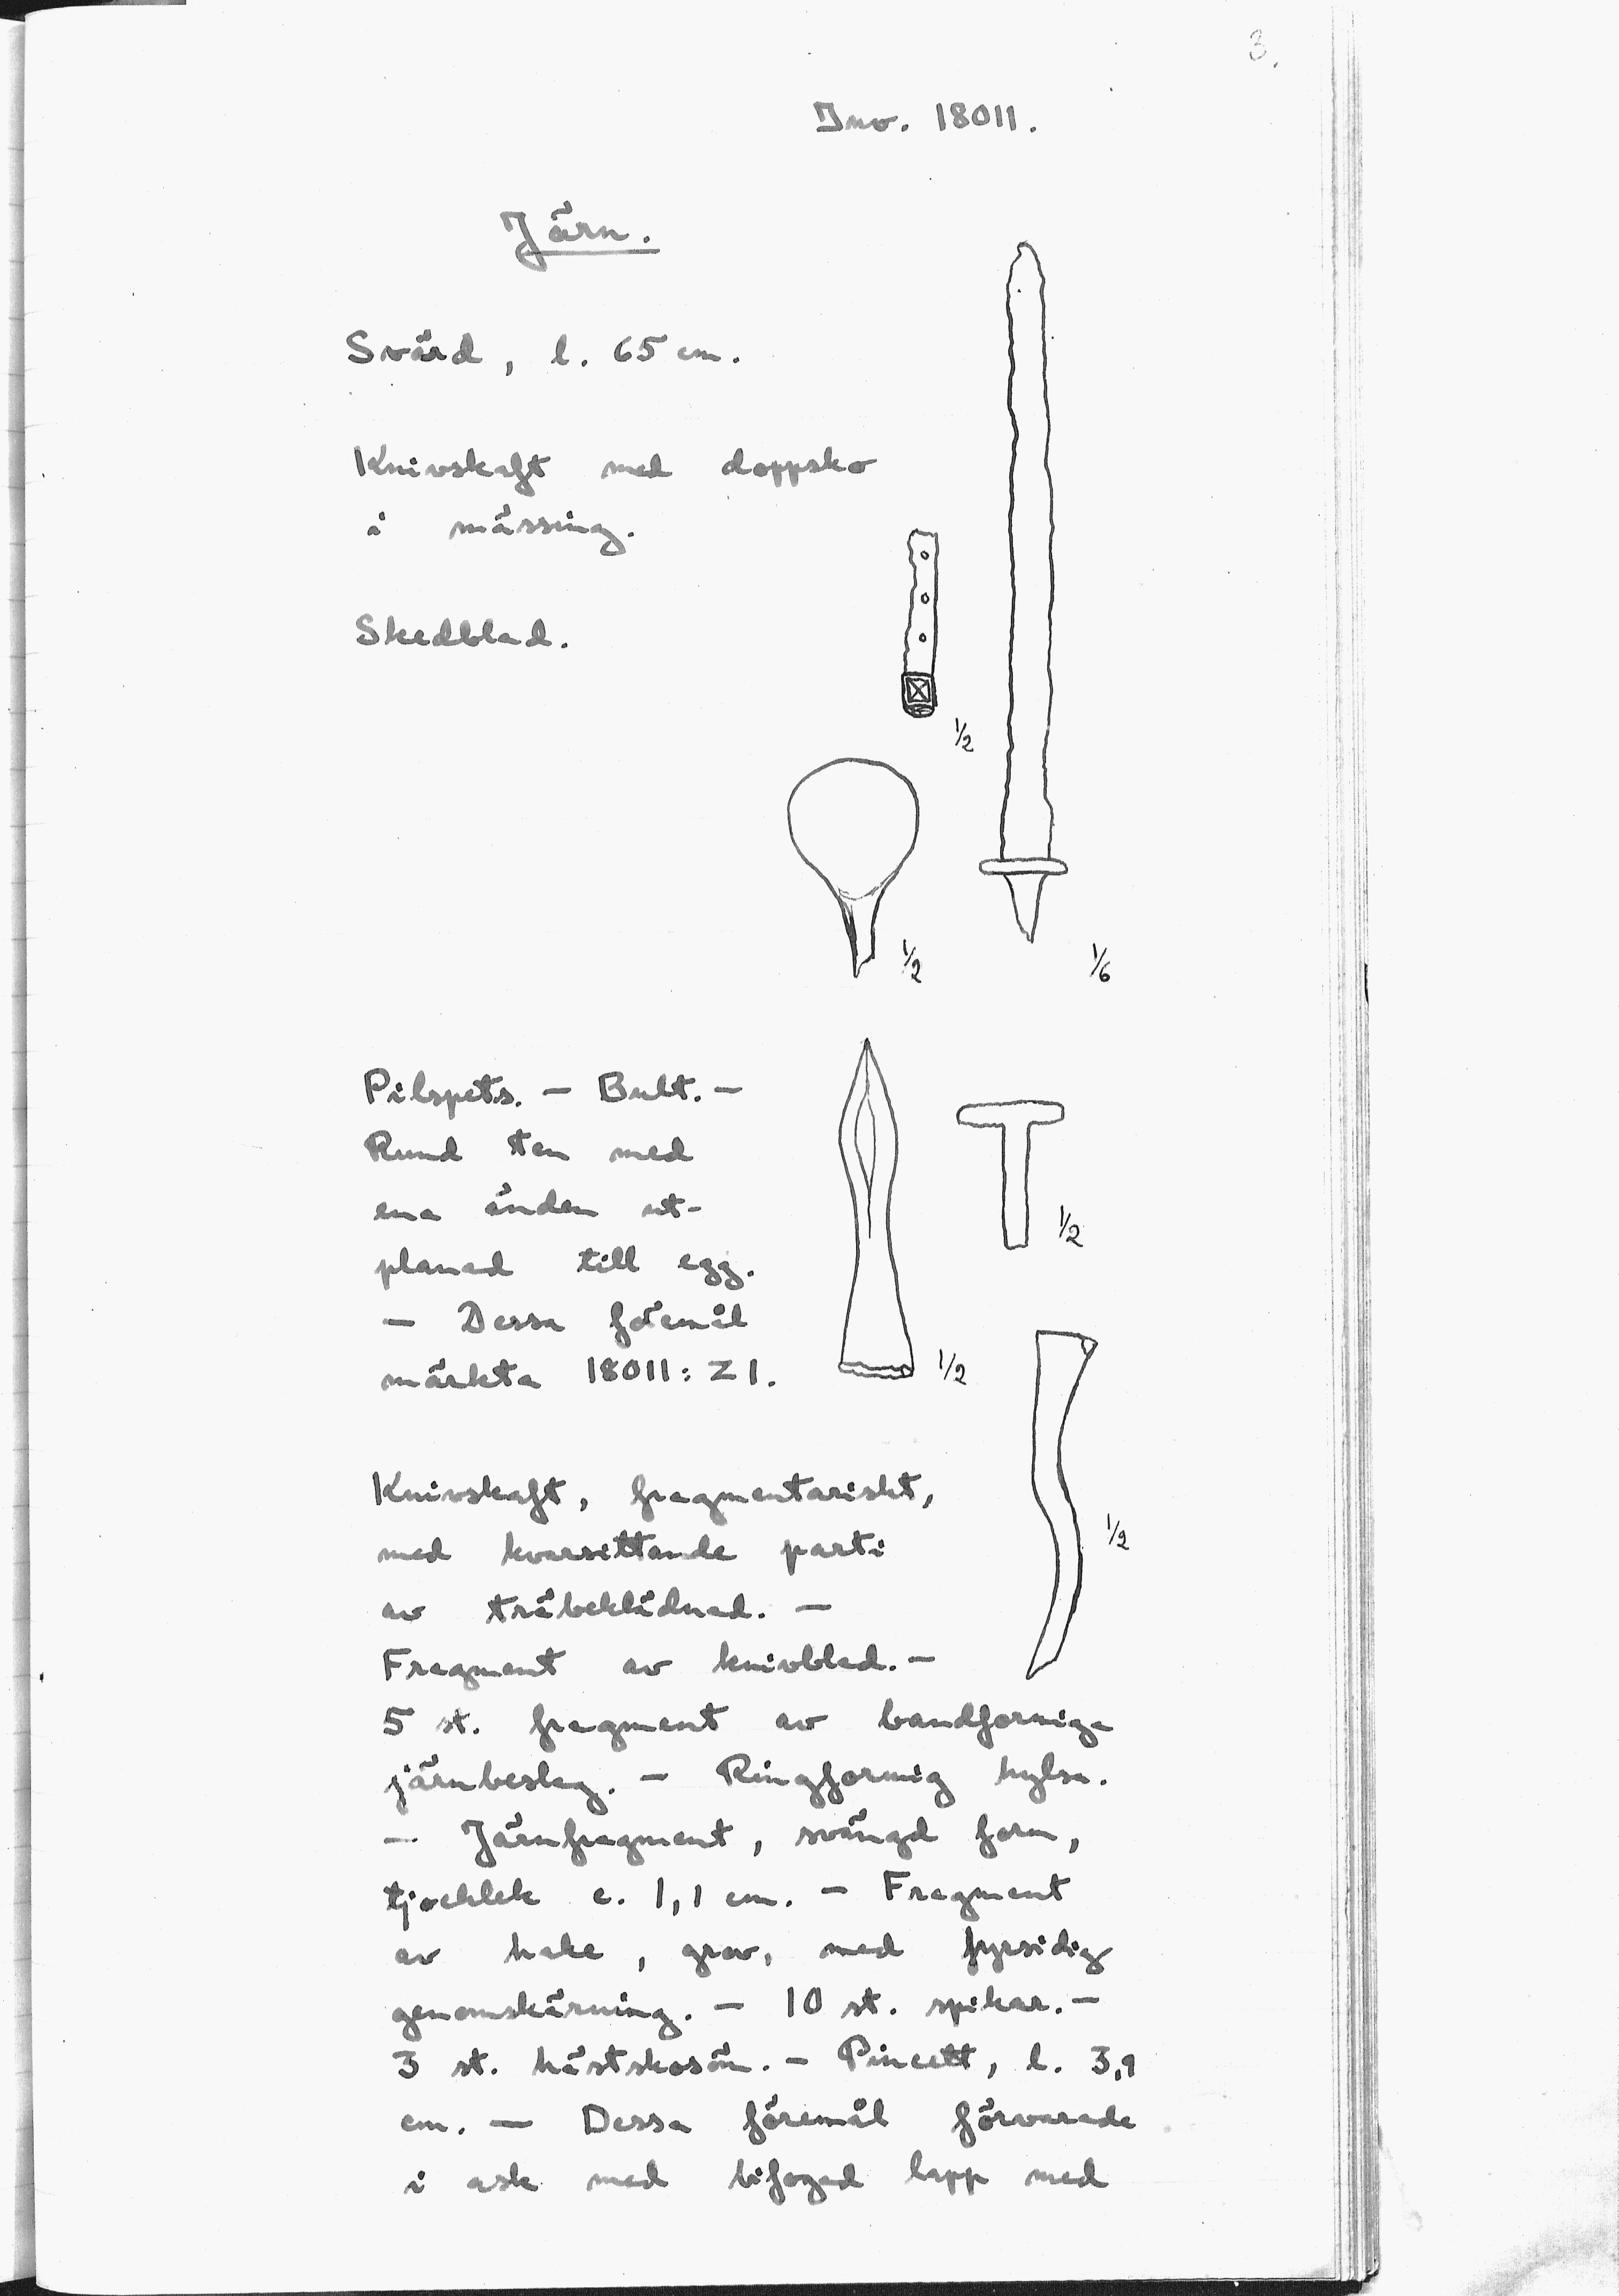 3.
Inv. 18011.
Järn.
Svärd, l. 65 cm.
Knivskaft med doppsko
i mässing.
Skedblad.
1/2
1/2
1/6
Pilspets. — Bult. —
Rund ten med
ena änden ut-
planad till egg.
— Dessa föremål
märkta 18011: Z1.
1/2
1/2
Knivskaft, fragmentariskt,
med kvarsittande parti
av träbeklädnad. —
Fragment av knivblad. —
1/2
5 st. fragment av bandformiga
järnbeslag. — Ringformig hylsa.
— Järnfragment, svängd form,
tjocklek c. 1,1 cm. — Fragment
av hake, grov, med fyrsidig
genomskärning. — 10 st. spikar. —
3 st. hästskosöm. — Pincett, l. 3,9
cm. — Dessa föremål förvarade
i ask med bifogad lapp med